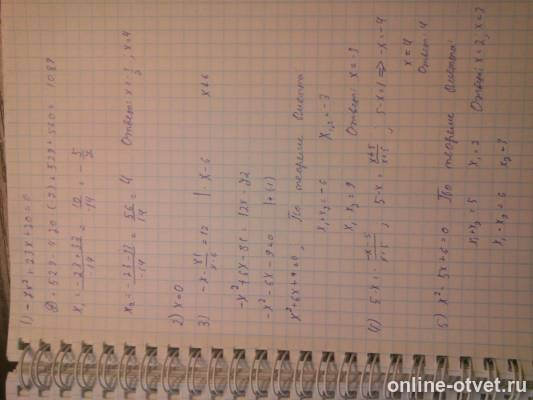 1) -7x² + 23x + 20 = 0
D = 529 - 4·20·(-7) = 529 + 560 = 1089
x₁ = (-23+33)/-14 = 10/-14 = -5/7
x₂ = (-23-33)/-14 = 56/14 = 4 Ответ: x = , x = 4
2) x = 0
3) -x - /x-6 = 12 | · x-6 x ≠ 6
-x² + 6x - 81 = 12x - 72
-x² - 6x - 9 = 0 | · (-1)
x² + 6x + 9 = 0, По теореме Виета
x₁ + x₂ = -6 x₁,₂ = -3
x₁ · x₂ = 9 Ответ: x = -3
4) 5-x = , 5-x = x+5/x+5, 5-x = 1 => -x = -4
x = 4
Ответ: 4
5) x² - 5x + 6 = 0 По теореме Виета:
x₁ + x₂ = 5 x₁ = 2 Ответ: x = 2, x = 3
x₁ · x₂ = 6 x₂ = 3
online-otvet.ru